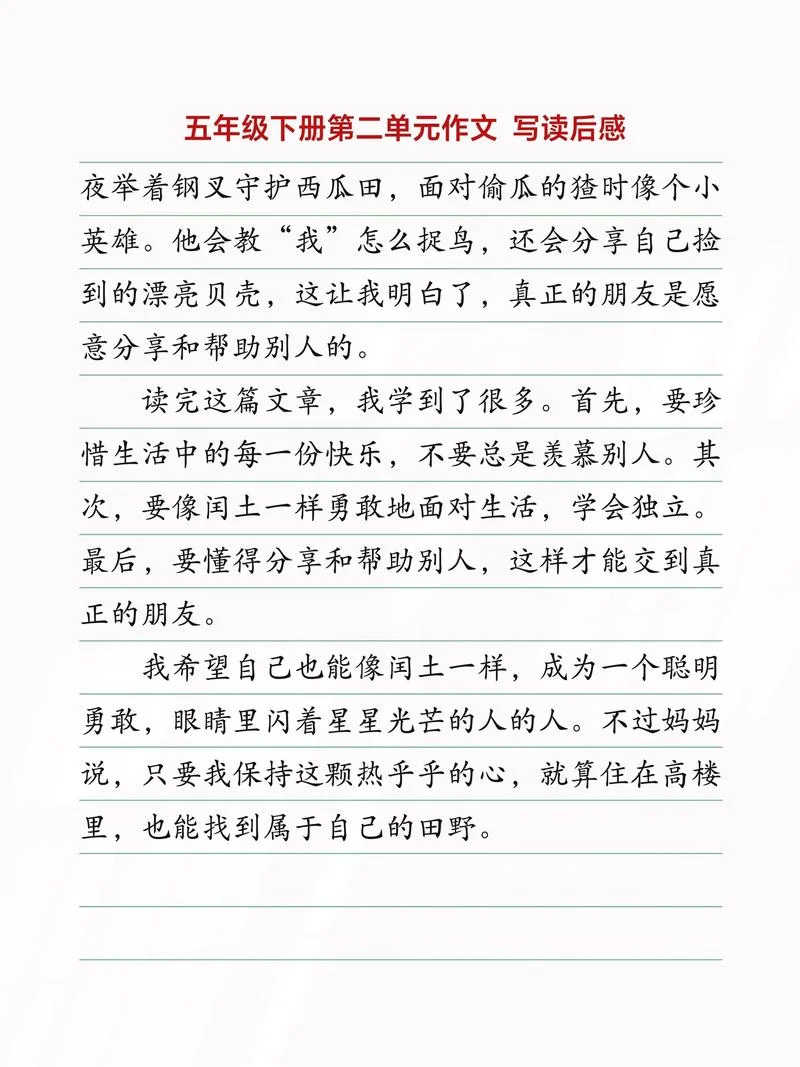 五年级下册第二单元作文 写读后感
夜举着钢叉守护西瓜田，面对偷瓜的猹时像个小
英雄。他会教“我”怎么捉鸟，还会分享自己捡
到的漂亮贝壳，这让我明白了，真正的朋友是愿
意分享和帮助别人的。
读完这篇文章，我学到了很多。首先，要珍
惜生活中的每一份快乐，不要总是羡慕别人。其
次，要像闰土一样勇敢地面对生活，学会独立。
最后，要懂得分享和帮助别人，这样才能交到真
正的朋友。
我希望自己也能像闰土一样，成为一个聪明
勇敢，眼睛里闪着星星光芒的人的人。不过妈妈
说，只要我保持这颗热乎乎的心，就算住在高楼
里，也能找到属于自己的田野。